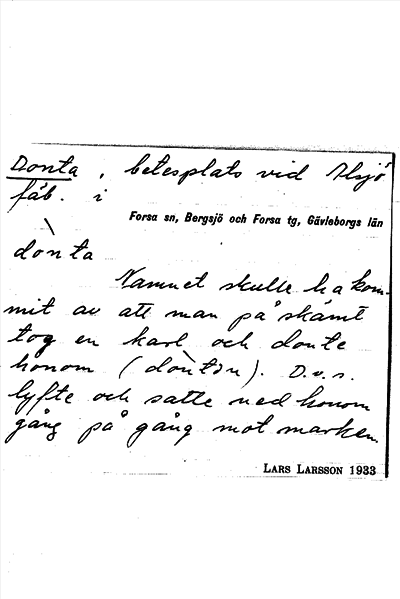 Donta, betesplats vid Ilsjö
fäb. i
Forsa sn, Bergsjö och Forsa tg, Gävleborgs län
dònta
Namnet skulle ha kom-
mit av att man på skämt
tog en karl och donte
honom (dòntǝn). D.v.s.
lyfte och satte ned honom
gång på gång mot marken.
LARS LARSSON 1933